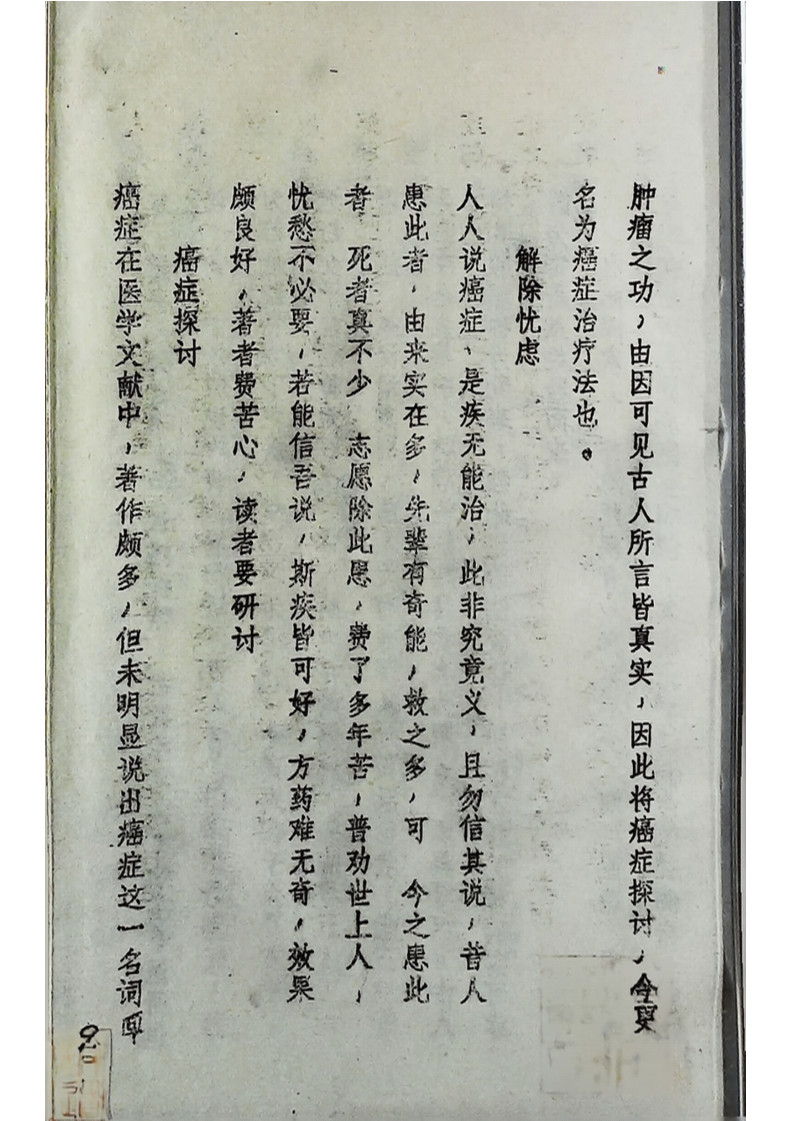 肿瘤之功，由因可见古人所言皆真实，因此将癌症探讨，今更
名为癌症治疗法也。
解除忧虑
人人说癌症、是疾无能治，此非究竟义，且勿信其说，昔人
患此者，由来实在多，先辈有奇能，救之多，可 今之患此
者 死者真不少 志愿除此患，费了多年苦，普劝世上人，
忧愁不必要，若能信吾说，斯疾皆可好，方药难无奇，效果
颇良好，著者费苦心，读者要研讨
癌症探讨
癌症在医学文献中，著作颇多，但未明显说出癌症这一名词